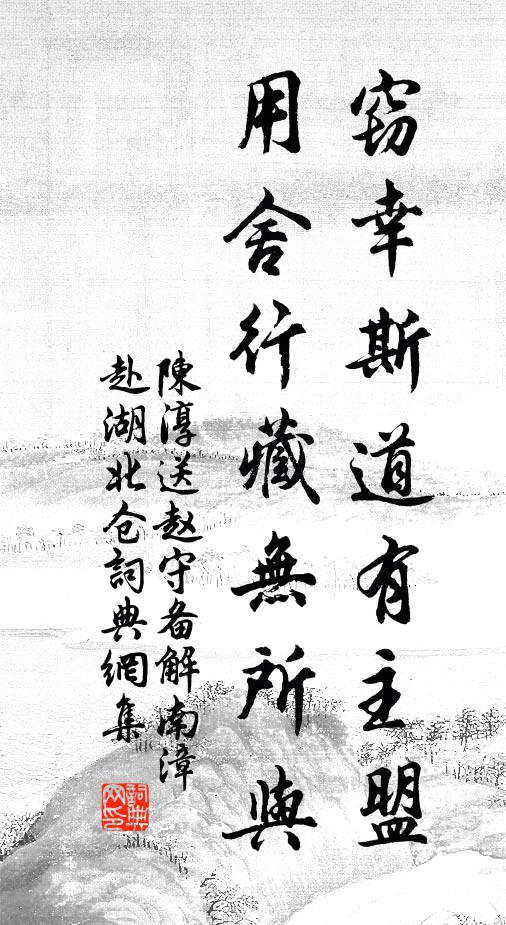 窃幸斯道有主盟
用舍行藏無所與
陳淳送赵守备解南漳
赴湖北仓詞典網集
詞典网印